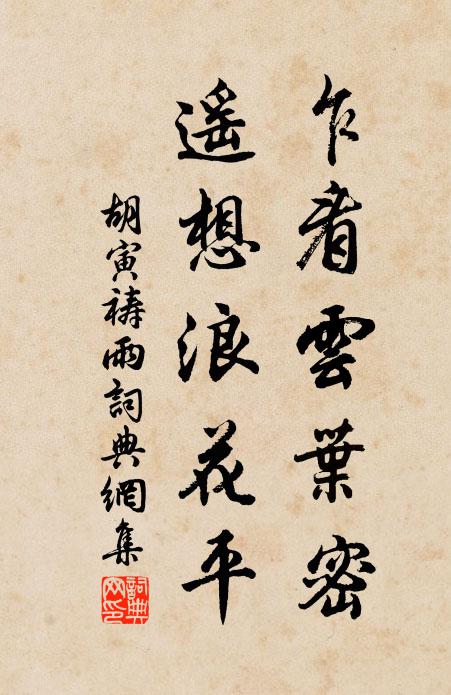 乍看雲葉密
遥想浪花平
胡寅禱雨詞典網集
詞典網印